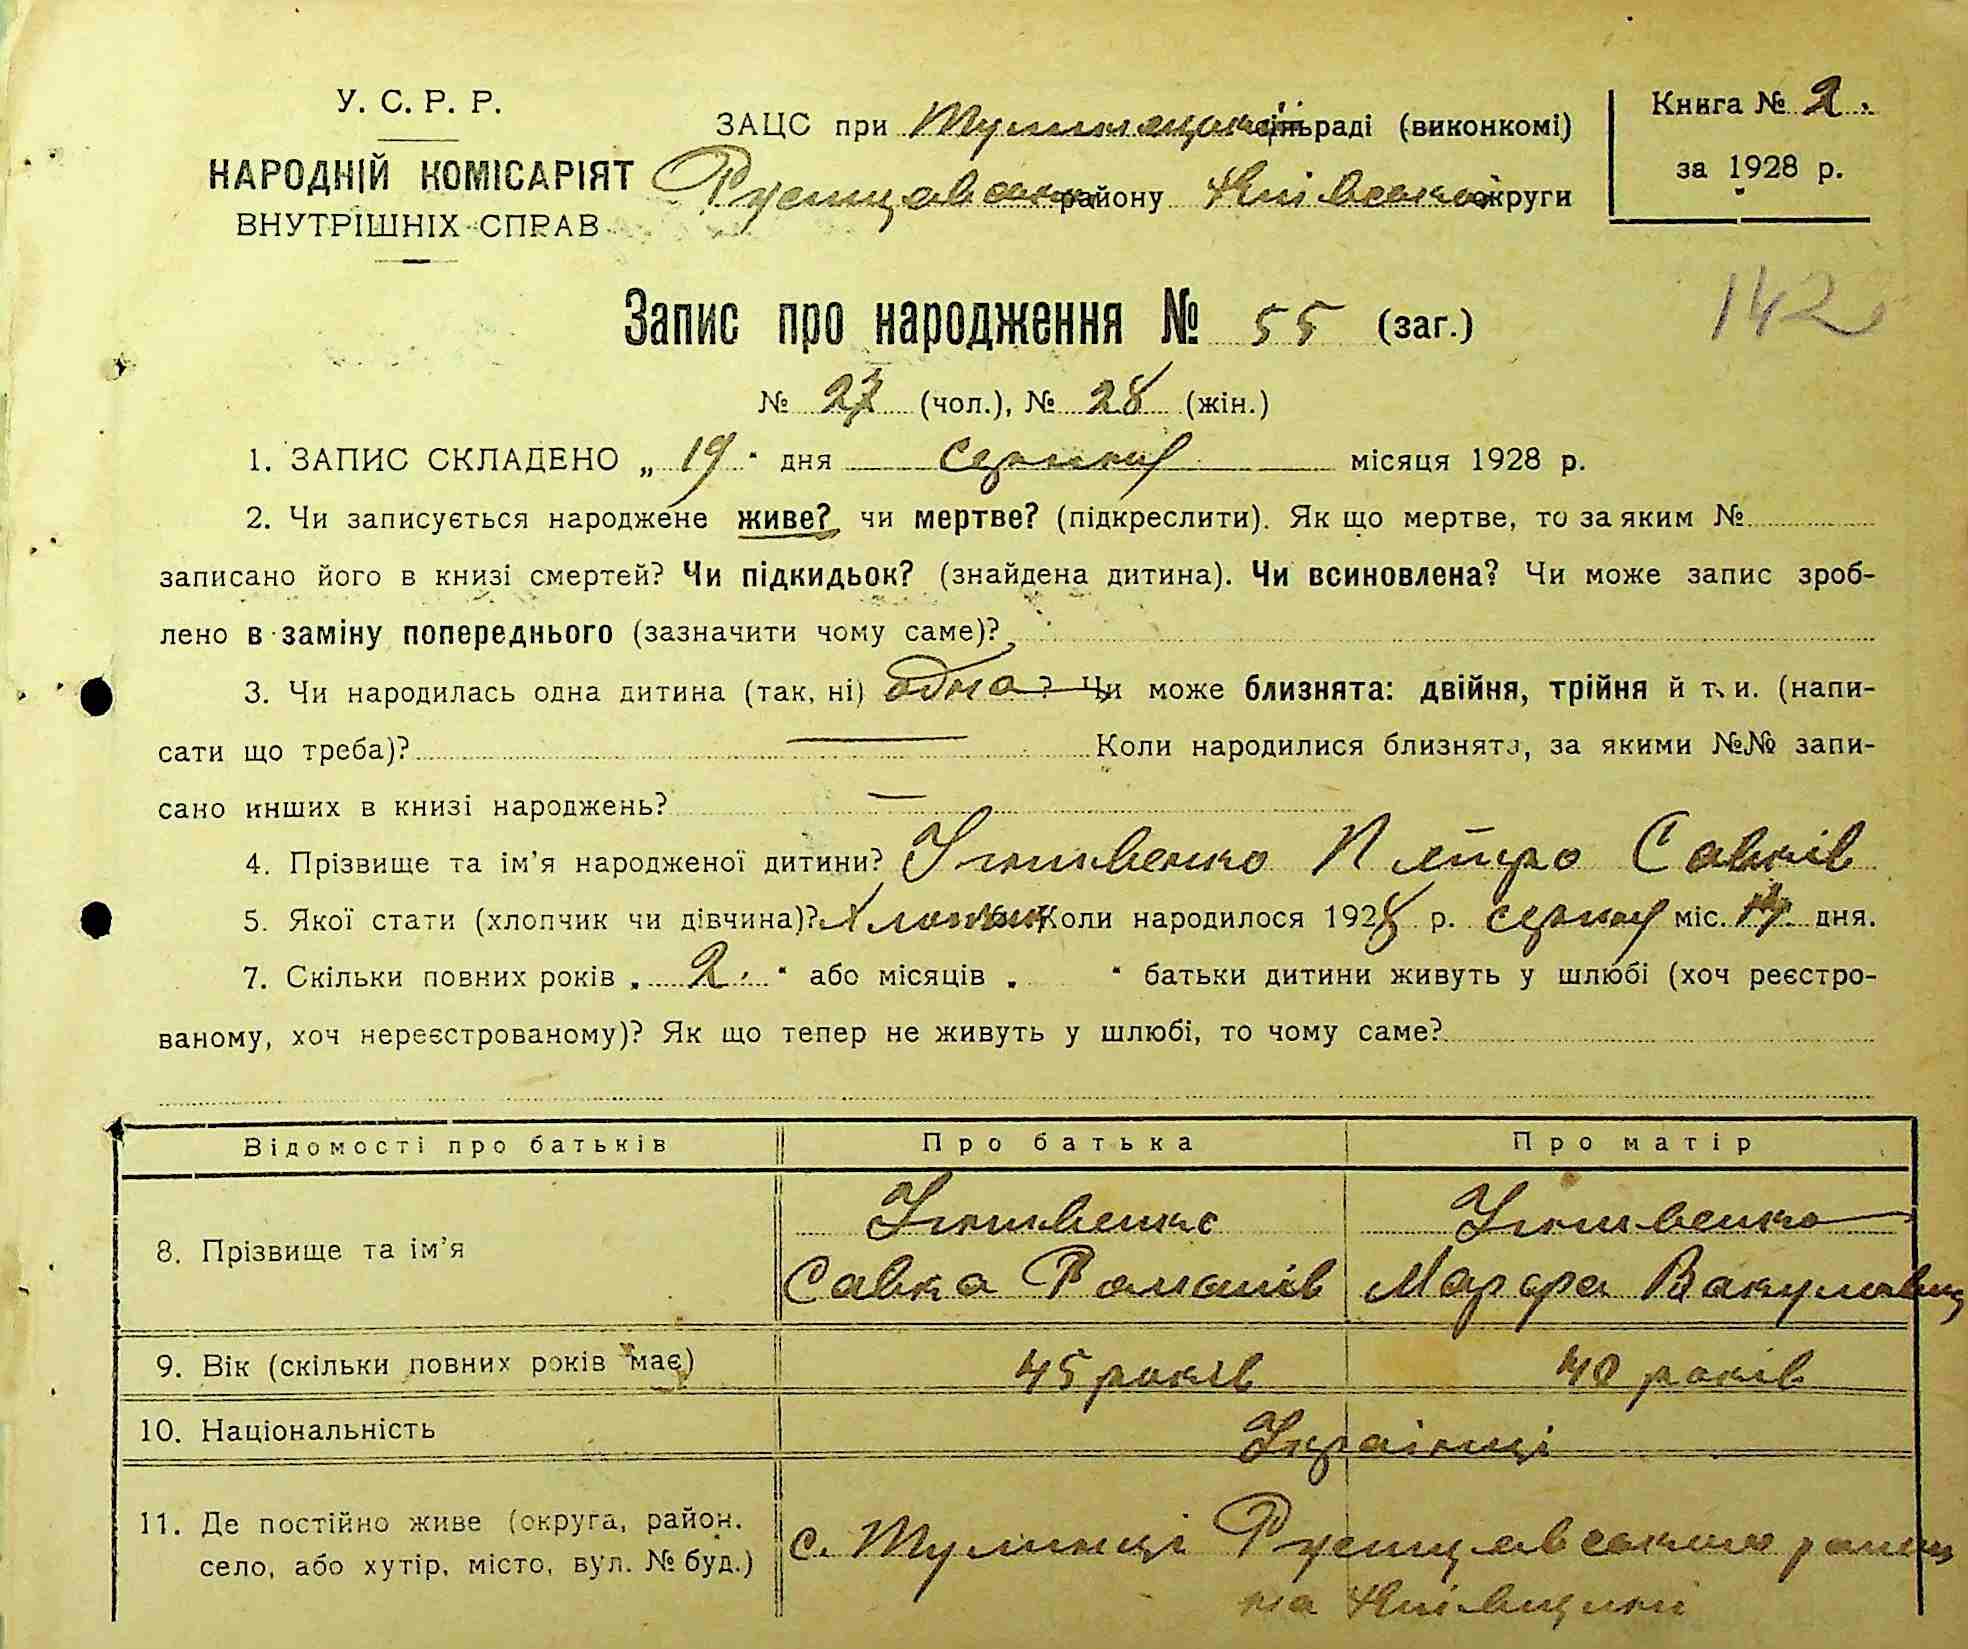 У. С. Р. Р.
НАРОДНІЙ КОМІСАРІЯТ
ВНУТРІШНІХ СПРАВ
ЗАЦС при Тулинецькій сільраді (виконкомі)
району Київської округи
Книга № 2.
за 1928 р.
142
Запис про народження № 55 (заг.)
№ 27 (чол.), № 28 (жін.)
1. ЗАПИС СКЛАДЕНО „ 19 " дня серпня місяця 1928 р.
2. Чи записується народжене живе? чи мертве? (підкреслити). Як що мертве, то за яким №
записано його в книзі смертей? Чи підкидьок? (знайдена дитина). Чи всиновлена? Чи може запис зроб-
лено в заміну попереднього (зазначити чому саме)?
3. Чи народилась одна дитина (так, ні) одна? Чи може близнята: двійня, трійня й т. и. (напи-
сати що треба)? Коли народилися близнята, за якими №№ запи-
сано инших в книзі народжень?
4. Прізвище та ім'я народженої дитини? Петро Савків
5. Якої стати (хлопчик чи дівчина)? Хлопчик Коли народилося 1928 р. серпня міс. дня.
7. Скільки повних років „ 2. " або місяців „ " батьки дитини живуть у шлюбі (хоч реєстро-
ваному, хоч нереєстрованому)? Як що тепер не живуть у шлюбі, то чому саме?
Відомості про батьків Про батька Про матір
8. Прізвище та ім'я
Савка Романів Марфа Вакуловна
9. Вік (скільки повних років має) 45 років 40 років
10. Національність Українці
11. Де постійно живе (округа, район,
село, або хутір, місто, вул. № буд.)
с. Тулинці
на Київщині